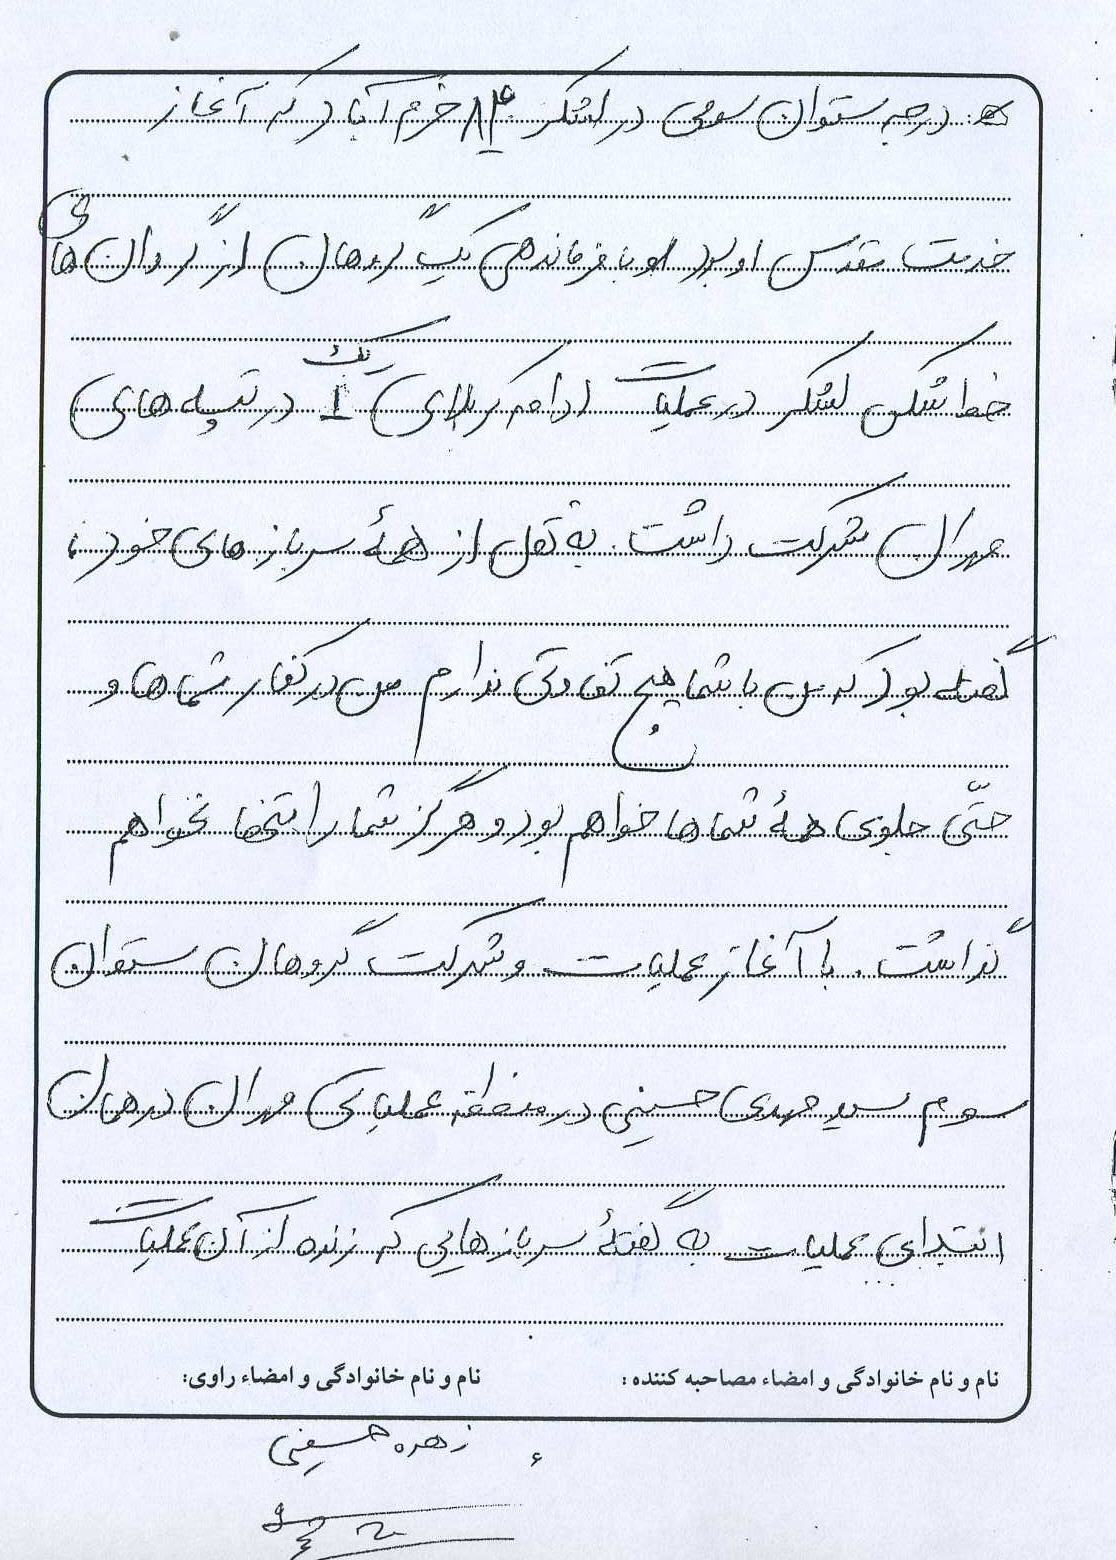 درجه ستوان سومی در لشکر ۸۴ خرم آباد که آغاز
خدمت مقدس او بود او با فرماندهی یک گروهان از گروان های
خط شکن لشکر در عملیات ادامه کربلای 1 یک در تپه های
مهران شرکت داشت. به نقل از همهٔ سرباز های خود،
گفته بود که من با شما هیچ تفاوتی ندارم من در کنار شماها و
حتّی جلوی همهٔ شماها خواهم بود و هرگز شما را تنها نخواهم
گذاشت. با آغاز عملیات و شرکت گروهان ستوان
سوم سید مهدی حسینی در منطقه عملیاتی مهران در همان
ابتدای عملیات به گفتهٔ سرباز هایی که زنده از آن عملیات
نام و نام خانوادگی و امضاء مصاحبه کننده : نام و نام خانوادگی و امضاء راوی:
زهره حسینی